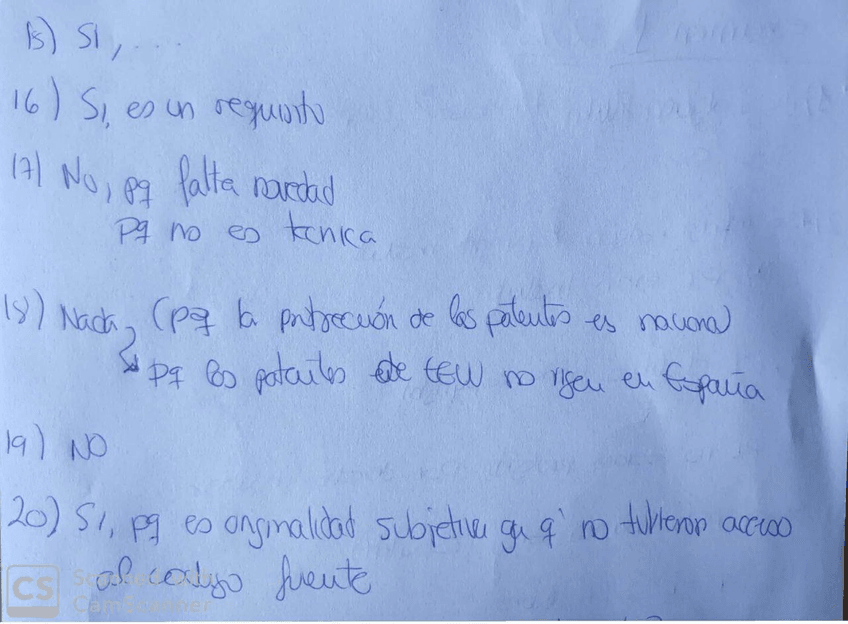 15) SI, ...
16) Si, es un requisito
17) No, pq falta novedad
pq no es tecnica
18) Nada, (pq la protección de las patentes es nacional)
pq las patentes de EEUU no rigen en España
19) NO
20) Si, pq es originalidad subjetiva ya q' no tubieron acceso
al codigo fuente
CS Scanned with
CamScanner